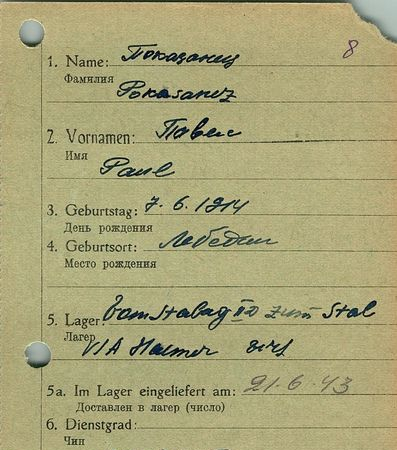 8
1. Name: Показанец
Фамилия
Pokasanez
2. Vornamen: Павел
Имя
Paul
3. Geburtstag: 7.6.1914
День рождения
4. Geburtsort: Лебедин
Место рождения
5. Lager: Vom Stalag II D zum Stal
Лагерь
VI A Hemer
5a. Im Lager eingeliefert am: 21.6.43
Доставлен в лагерь (число)
6. Dienstgrad:
Чин